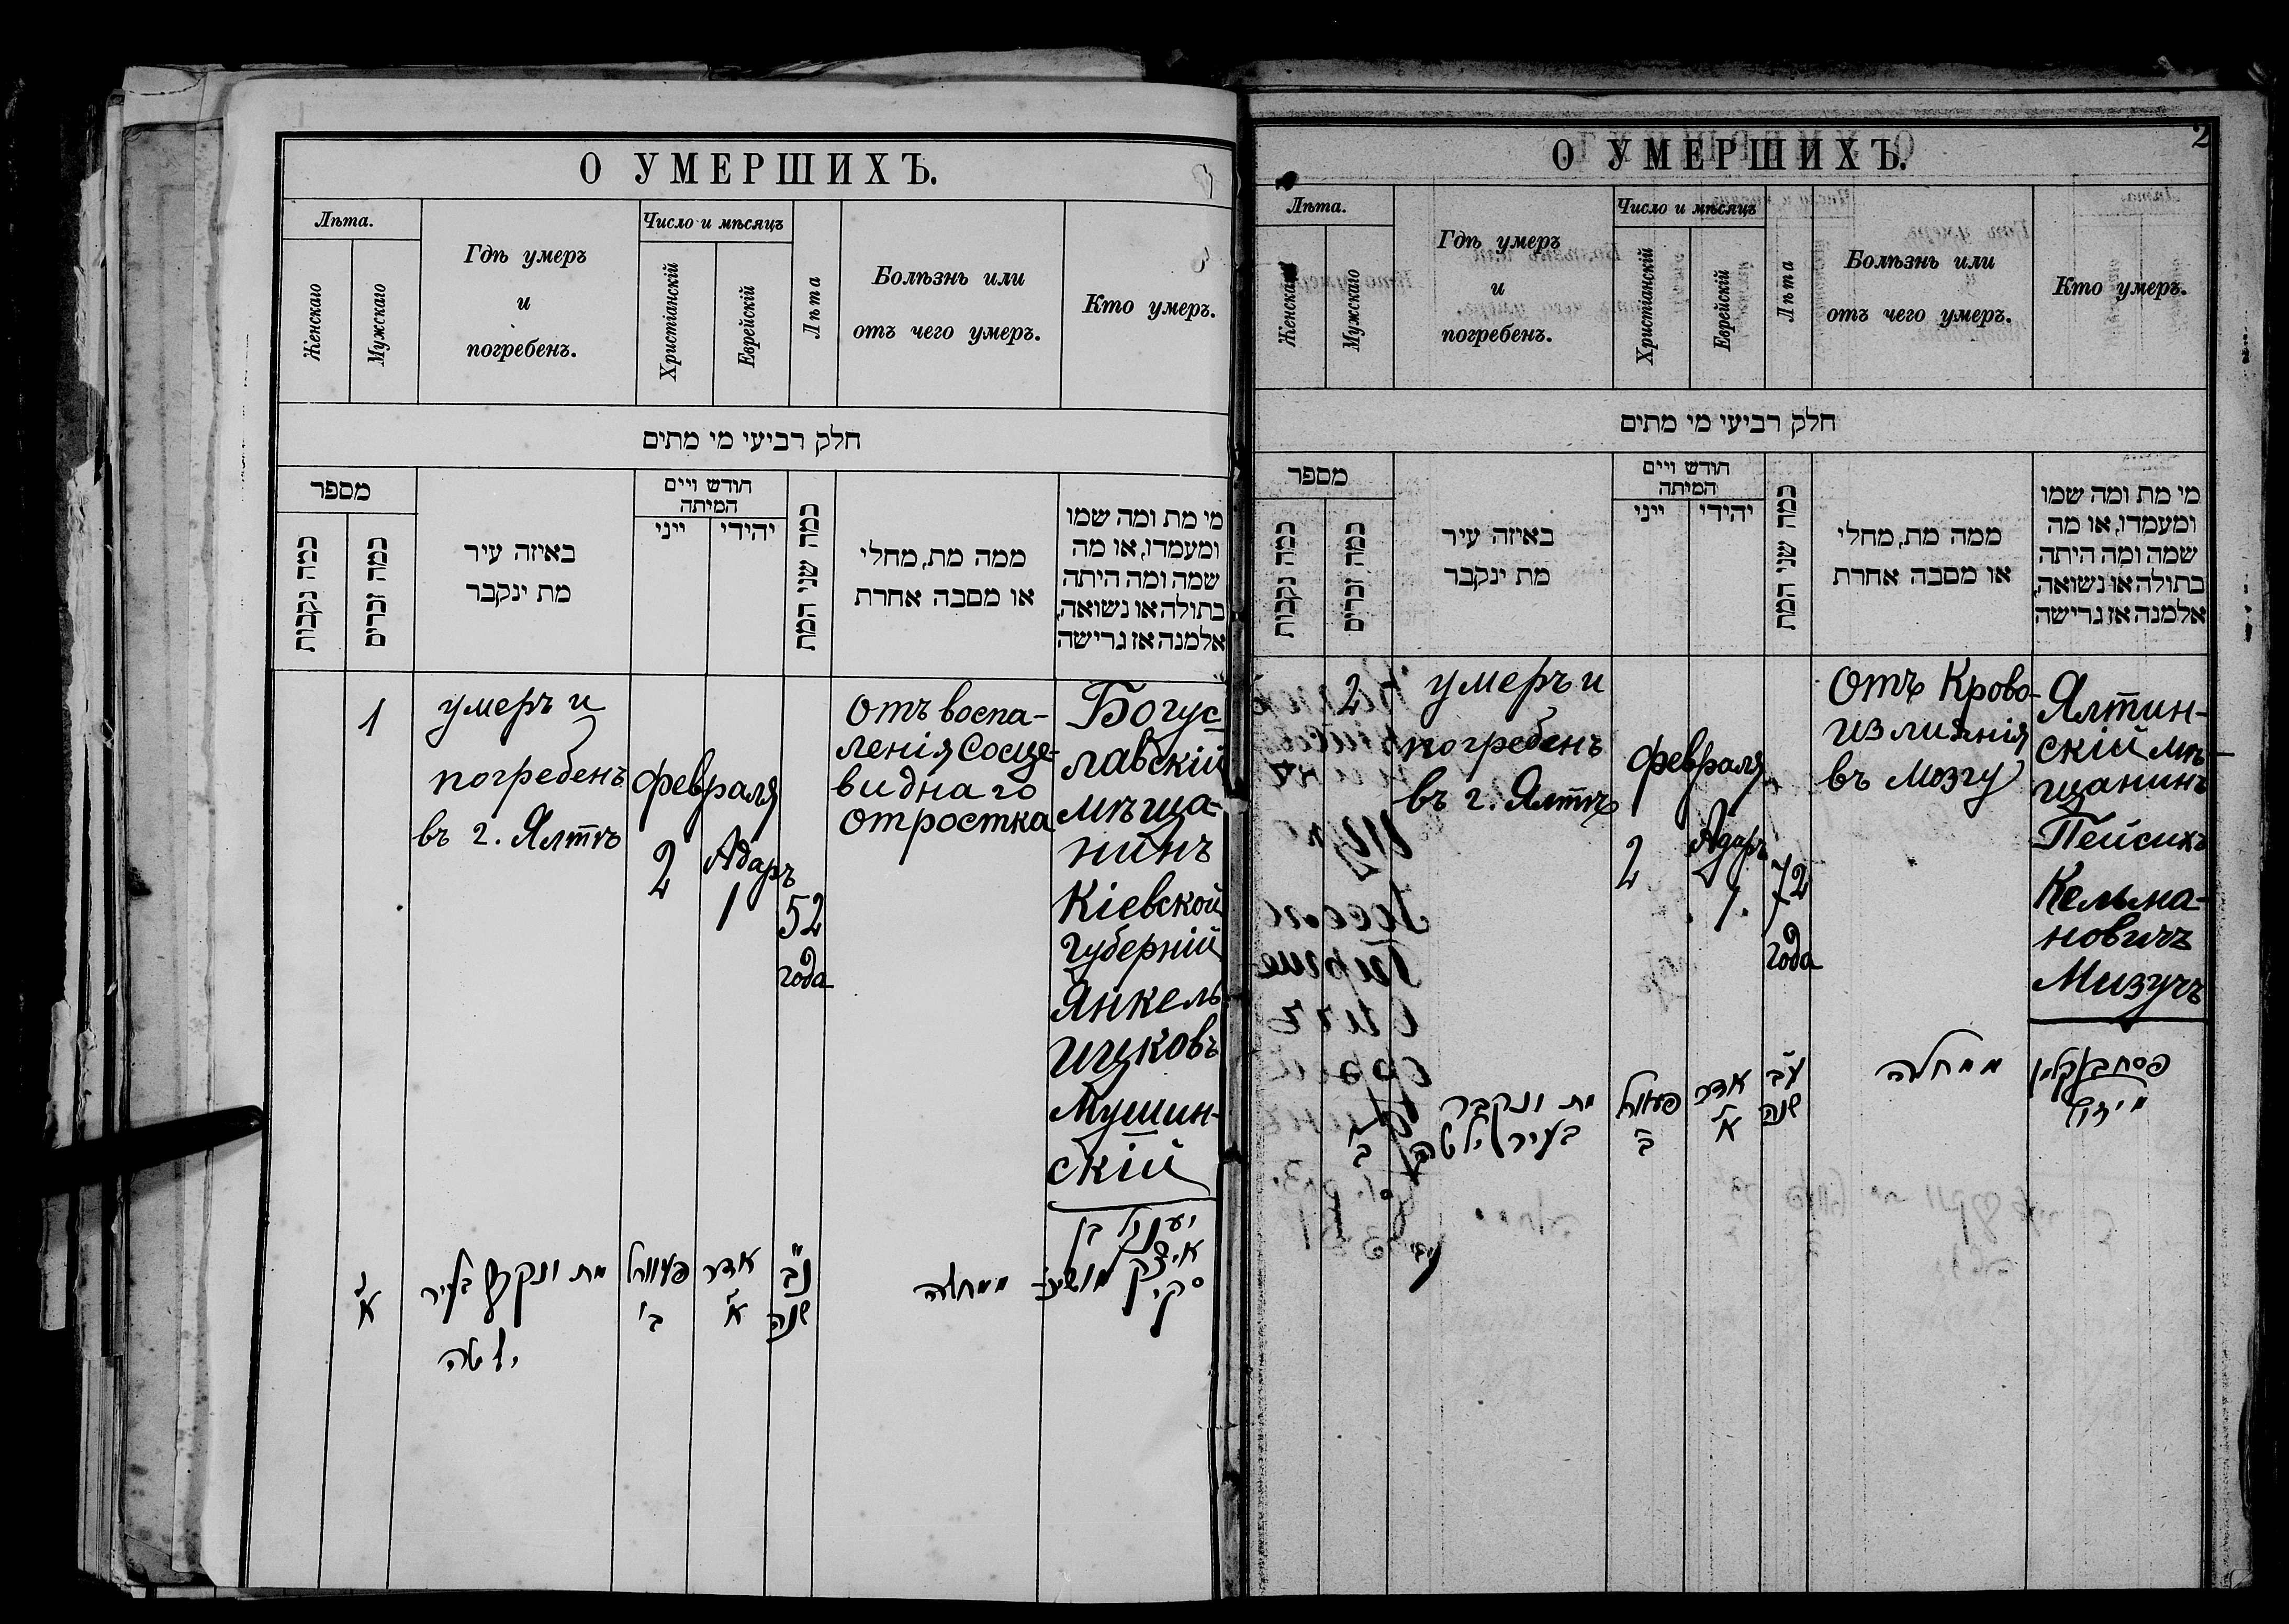 О УМЕРШИХЪ.
Лѣта.
Женскаго
Мужскаго
Гдѣ умеръ
и
погребенъ.
Число и мѣсяцъ
Христіанскій
Еврейскій
Лѣта
Болѣзнь или
отъ чего умеръ.
Кто умеръ.
חלק רביעי מי מתים
מספר
כמה נקבות
כמה זכרים
באיזה עיר
מת ינקבר
חודש ויים
המיתה
ייני
יהידי
כמה שני המת
ממה מת, מחלי
או מסבה אחרת
מי מת ומה שמו
ומעמדו, או מה
שמה ומה היתה
בתולה או נשואה,
אלמנה אז גרישה
1
умеръ и
погребенъ
въ г. Ялтѣ
февраля
2
Адаръ
1
52
года
отъ воспа-
ленія Сосце-
виднаго
отростка
Богус
лавскій
мѣща-
нинъ
Кіевской
Губерній
Янкель
Ицковъ
Мушин-
скій
א
מת ונקבר בעיר
ילטה
פעוורל
ב'
אדר
א
נב
שנה
ממחלה
יענקל בן
איצק
סקי
О УМЕРШИХЪ.
2
Лѣта.
Женскаго
Мужскаго
Гдѣ умеръ
и
погребенъ.
Число и мѣсяцъ
Христіанскій
Еврейскій
Лѣта
Болѣзнь или
отъ чего умеръ.
Кто умеръ.
חלק רביעי מי מתים
מספר
כמה נקבות
כמה זכרים
באיזה עיר
מת ינקבר
חודש ויים
המיתה
ייני
יהידי
כמה שני המת
ממה מת, מחלי
או מסבה אחרת
מי מת ומה שמו
ומעמדו, או מה
שמה ומה היתה
בתולה או נשואה,
אלמנה אז גרישה
2
умеръ и
погребенъ
въ г. Ялтѣ
февраля
2
Адаръ
1.
72
года
отъ Крово-
излиянія
въ мозгу
Ялтин-
скій мѣ-
щанинъ
Пейсихъ
Кельма-
новичъ
Мизучъ
ב
מת ונקבר
בעיר ילטה
ב
אדר
א
עב
שנה
ממחלה